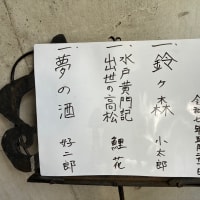 一、鈴ヶ森 小太郎
一、水戸黄門記
出世の高松 鯉花
一、夢の酒 好二郎